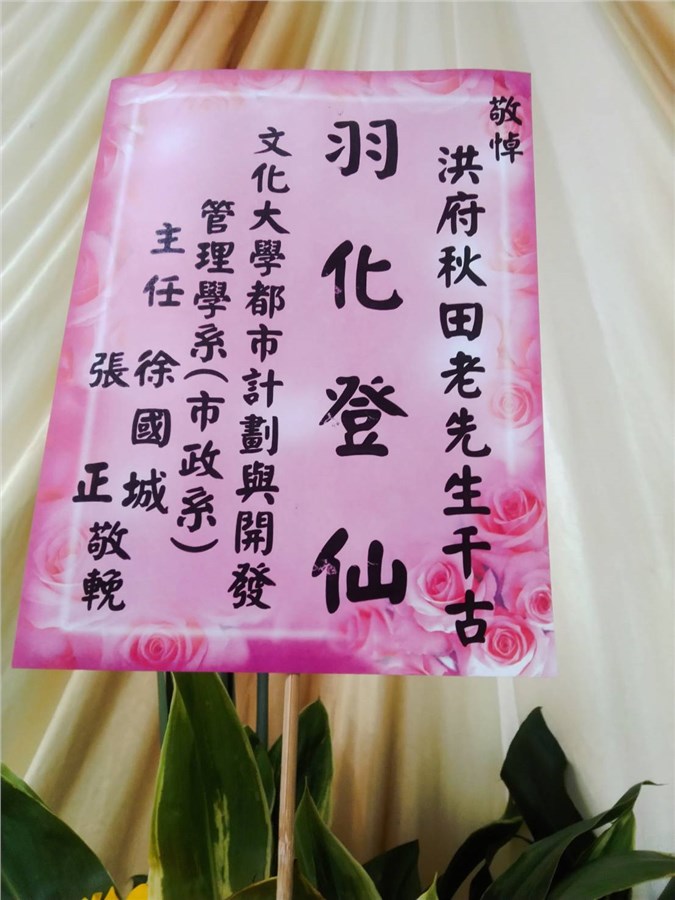 敬悼
洪府秋田老先生千古
羽化登仙
文化大學都市計劃與開發
管理學系(市政系)
主任 徐國城
張正敬輓